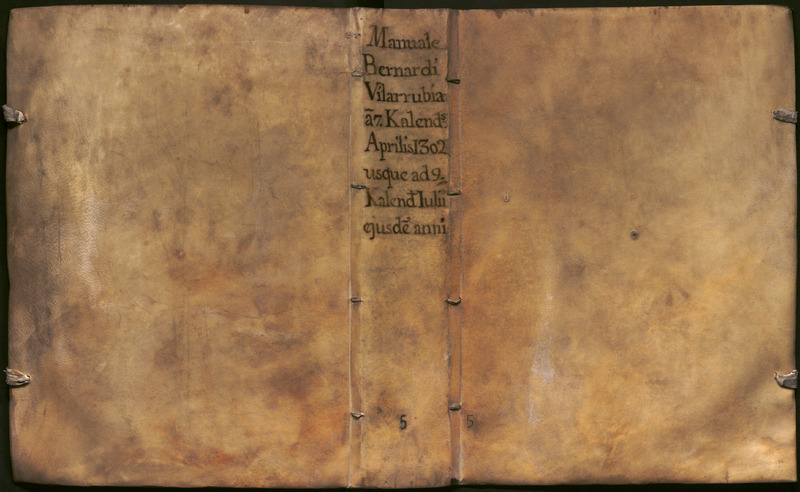 Manuale
Bernardi
Vilarrubia
a͞ 7 Kalend.s
Aprilis 1302
usque ad 9
Kalend Iulii
ejusdē anni
5
5